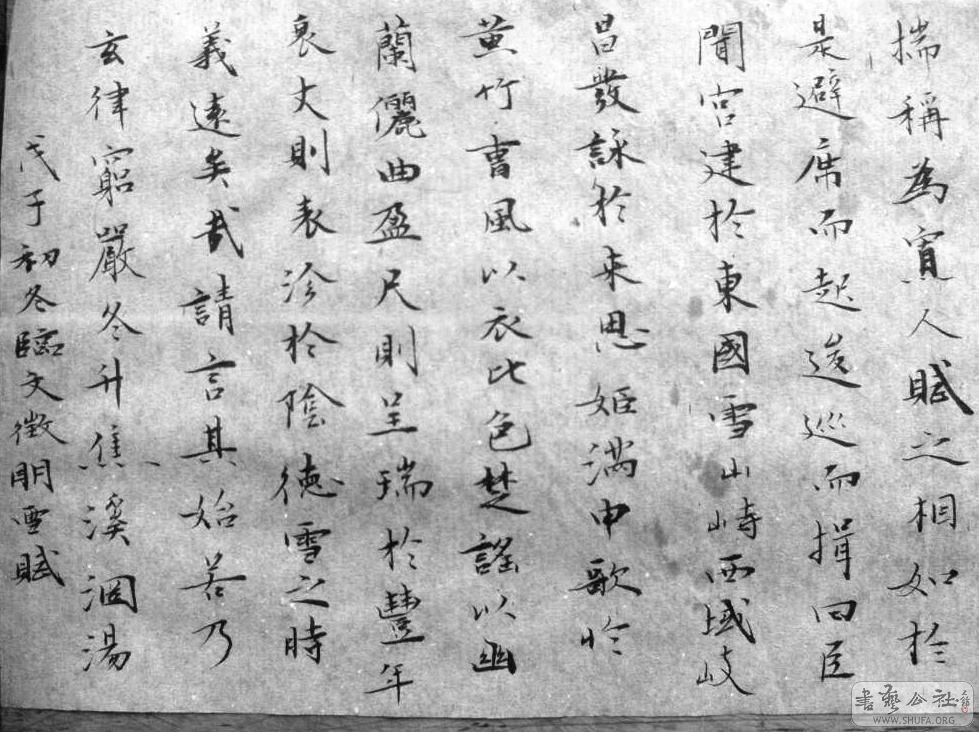 揣稱為寡人賦之相如於
是避席而起逡巡而揖曰臣
聞宮建於東國雪山峙西域岐
昌發詠於来思姬滿申歌於
黄竹曹風以衣比色楚謠以幽
蘭儷曲盈尺則呈瑞於豐年
袤丈則表沴於陰德雪之時
義遠矣哉請言其始若乃
玄律窮嚴冬升焦溪涸湯
戊子初冬臨文徵明雪賦
書藝公社
WWW.SHUFA.ORG